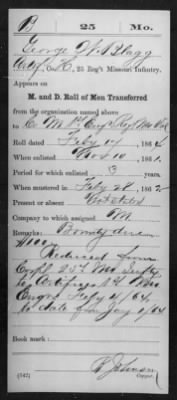 B 25 Mo.
George W. Blagg
Artif., Co. H, 25 Reg't Missouri Infantry.
Appears on
M. and D. Roll of Men Transferred
from the organization named above
to Co. M 1st Eng. Reg. Mo Vol
Roll dated Feby 14, 1864
When enlisted Nov 10, 1861
Period for which enlisted 3 years.
When mustered in Feby 28, 1862
Present or absent Not stated
Company to which assigned M
Remarks: Bounty due
$100
Reduced from
Corpl 25th Mo Infty
to Artificer 1st Mo
Engrs Feby 4/64
to date from Jany 1/64
Book mark:
Johnson
(542) Copyist.